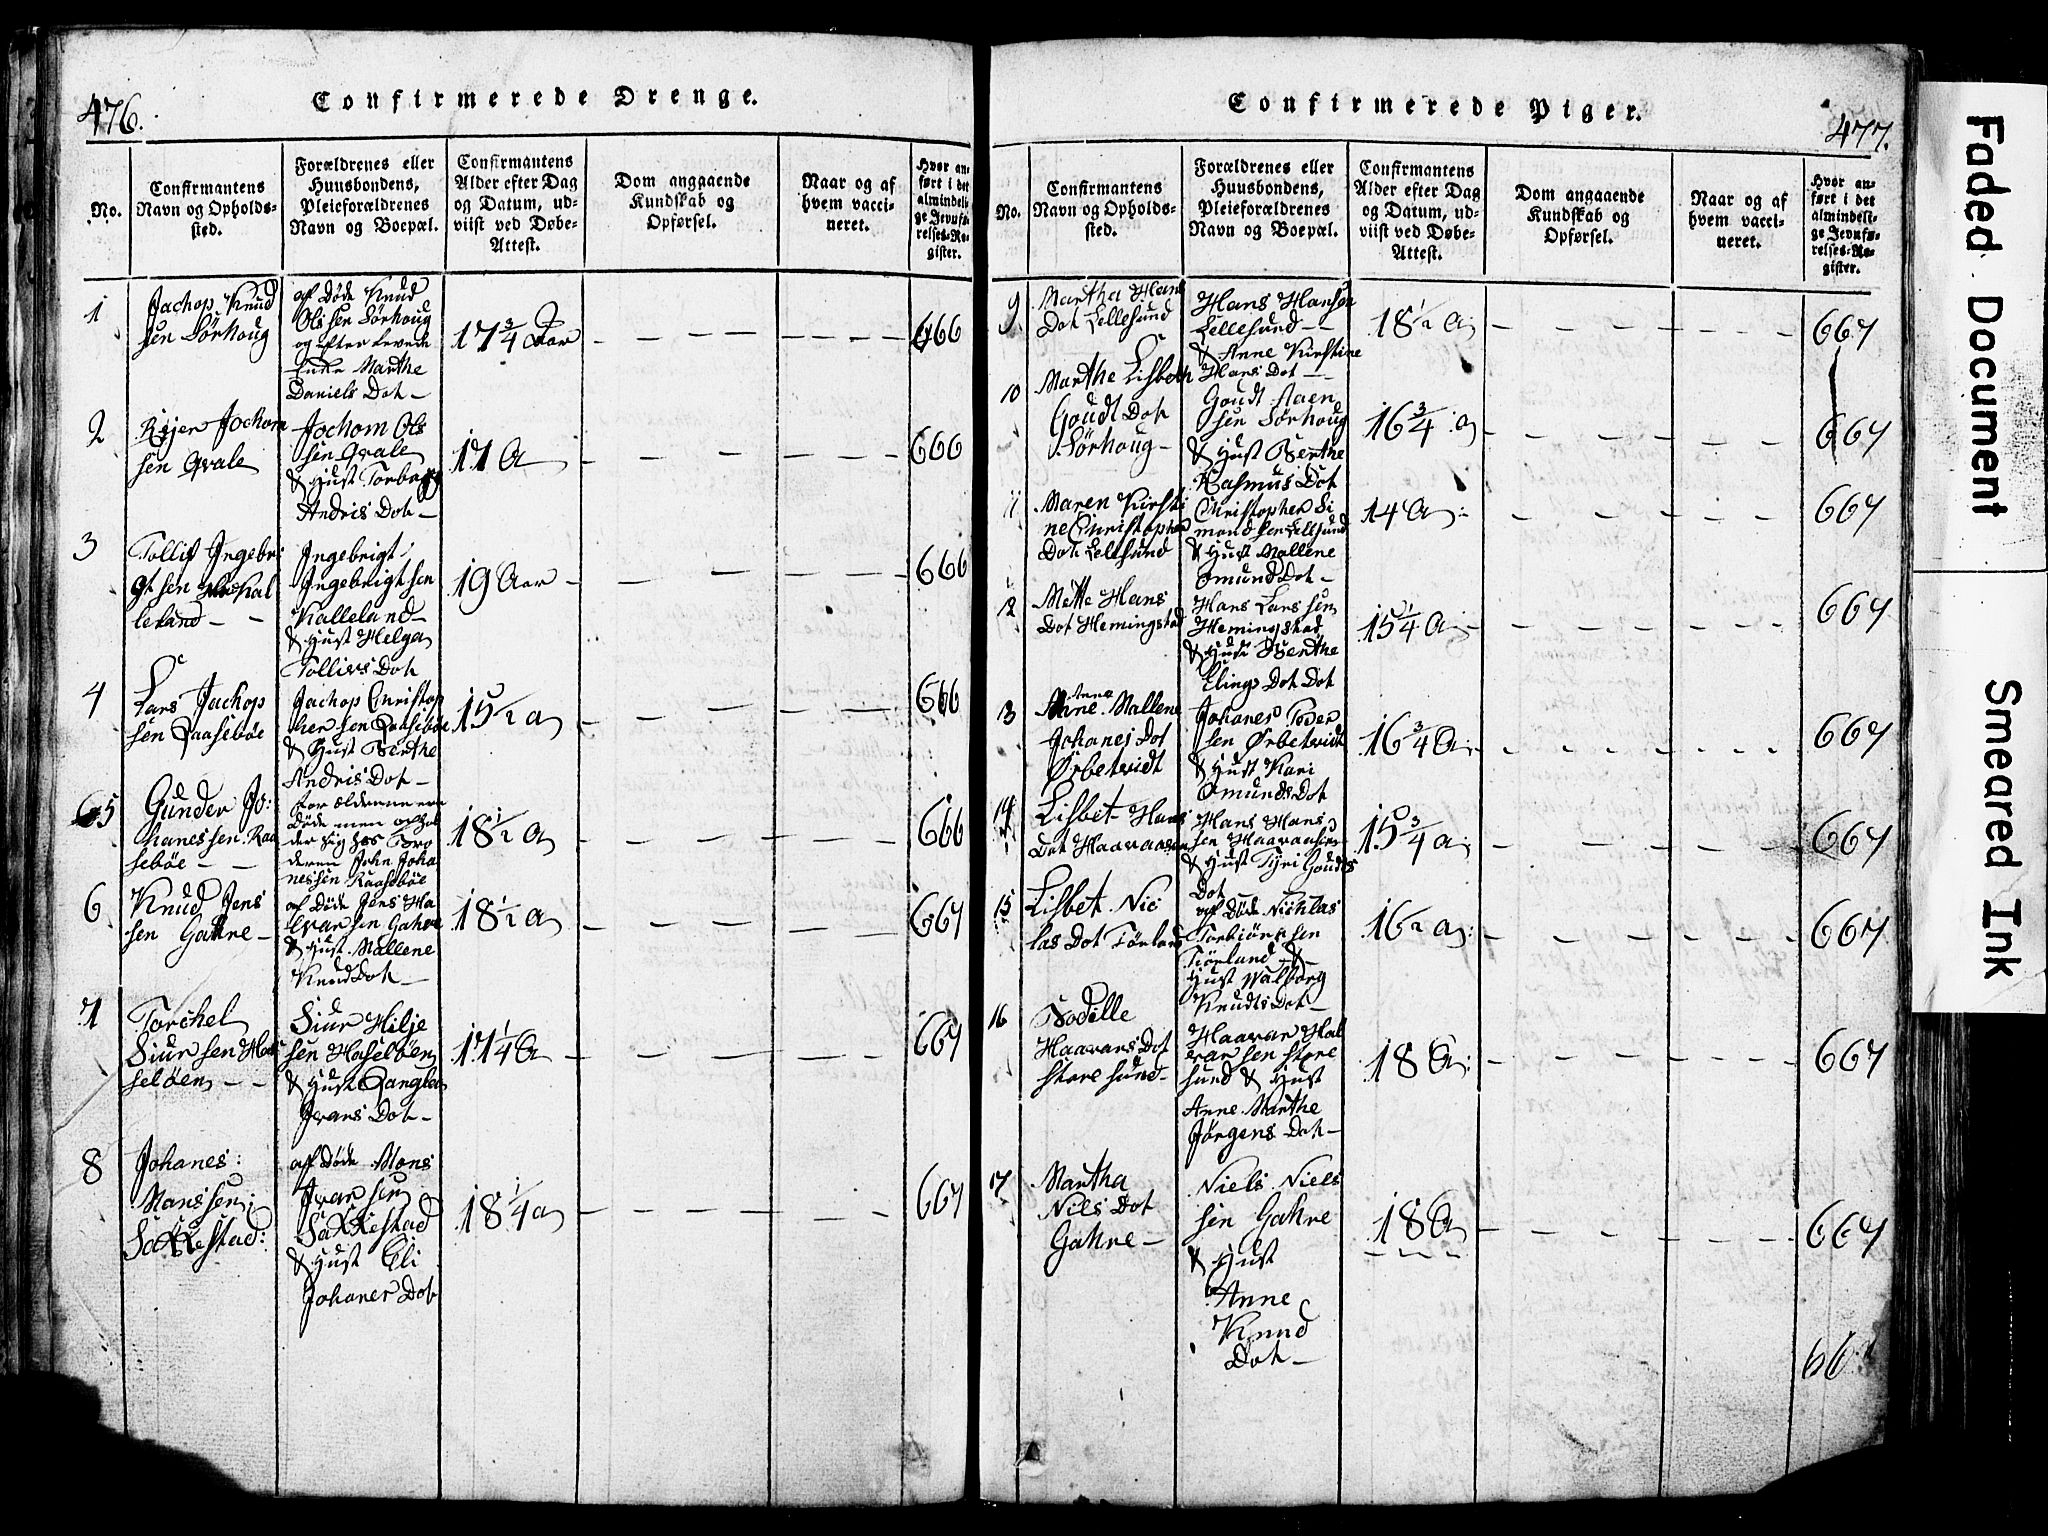 476.
Confirmerede Drenge.
No.
Confirmantens
Navn og Opholds-
sted.
Forældrenes eller
Huusbondens,
Pleieforældrenes
Navn og Boepæl.
Confirmantens
Alder efter Dag
og Datum, ud-
viist ved Døbe-
Attest.
Dom angaaende
Kundskab og
Opførsel.
Naar og af
hvem vacci-
neret.
Hvor an-
ført i det
almindeli-
ge Jevnfø-
relses-Re-
gister.
1
Jachop Knud
sen Sörhoug
af Døde Knud
Olssen Sörhoug
og efter Levende
Enke Marthe
Daniels Dot
17 3/4 Aar
666
2
Rejer Jochom
sen Qvale
Jochom Ols
sen Qvale
& Hust Torbaar
Andris Dot
17 A
666
3
Tollif Ingebri
gt sen Kal
leland
Ingebrigt
Ingebrigtsen
Kalleland
& Hust Helga
Tollivs Dot
19 Aar
666
4
Lars Jachop
sen Raasebøe
Jachop Christop
hersen Raasebøe
& Hust Berthe
Andris Dot
15 1/2 a
666
5
Gunder Jo:
hanessen Raa
sebøe
Forælderne ere
Døde men ophol
der sig hos Bro
deren John Joha
nessen Raasebøe
18 1/2 a
666
6
Knud Jens
sen Gahre
af Døde Jens Ha
lvarsen Gahre
& Hust Mallene
Knud Dot
18 1/2 a
667
7
Torchel
Siur sen Has
seløen
Siur Hilje
sen Haseløen
& Hust Rangle
Ivars Dot
17 1/4 A
667
8
Johanes:
Monssen
Sakkestad:
af Døde Mons
Ivarsen
Sakkestad
& Hust Eli
Johanes Dot
18 1/4 a
667
477.
Confirmerede Piger.
No.
Confirmantens
Navn og Opholds-
sted.
Forældrenes eller
Huusbondens,
Pleieforældrenes
Navn og Boepæl.
Confirmantens
Alder efter Dag
og Datum, ud-
viist ved Døbe-
Attest.
Dom angaaende
Kundskab og
Opførsel.
Naar og af
hvem vacci-
neret.
Hvor an-
ført i det
almindeli-
ge Jevnfø-
relses-Re-
gister.
9
Martha Hans
Dot Lellesund
Hans Hansen
Lellesund
& Anne Kirstine
Hans Dot
18 1/2 a
667
10
Marthe Lisbeth
Goudt Dot
Sörhoug
Goudt Aaen
sen Sörhoug
& Hust Berthe
Rasmus Dot
16 3/4 a
667
11
Maren Kirsti
ne Christopher
Dot Lellsund
Christopher Si
mondsen Lellsund
& Hust Mallene
Omund Dot
14 A
667
12
Mette Hans
Dot Hemingstad
Hans Larssen
Hemingstad
& Hust Berthe
Elings Dot Dot
15 1/4 A
667
13
Anna
Mallene
Johanes Dot
Ørbetvidt
Johanes Peder
sen Ørbetvidt
& Hust Kari
Omunds Dot
16 3/4 A
667
14
Lisbet Hans
Dot Haavaasen
Hans Hans
sen Haavaasen
& Hust Tyri Goudes
Dot
15 3/4 a
667
15
Lisbet Nic
las Dot Förland
af Døde Nichlas
Torbiörnsen
Förland &
Hust Walborg
Knudts Dot
16 1/2 a
667
16
Bodille
Haavars Dot
store sund
Haavar Hal
varsen store
sund & Hust
Anne Marthe
Jörgens Dot
18 A
667
17
Martha
Nils Dot
Gahre
Niels Niels
sen Gahre
& Hust
Anne
Knud
Dot
18 A
667
Faded Document
Smeared Ink